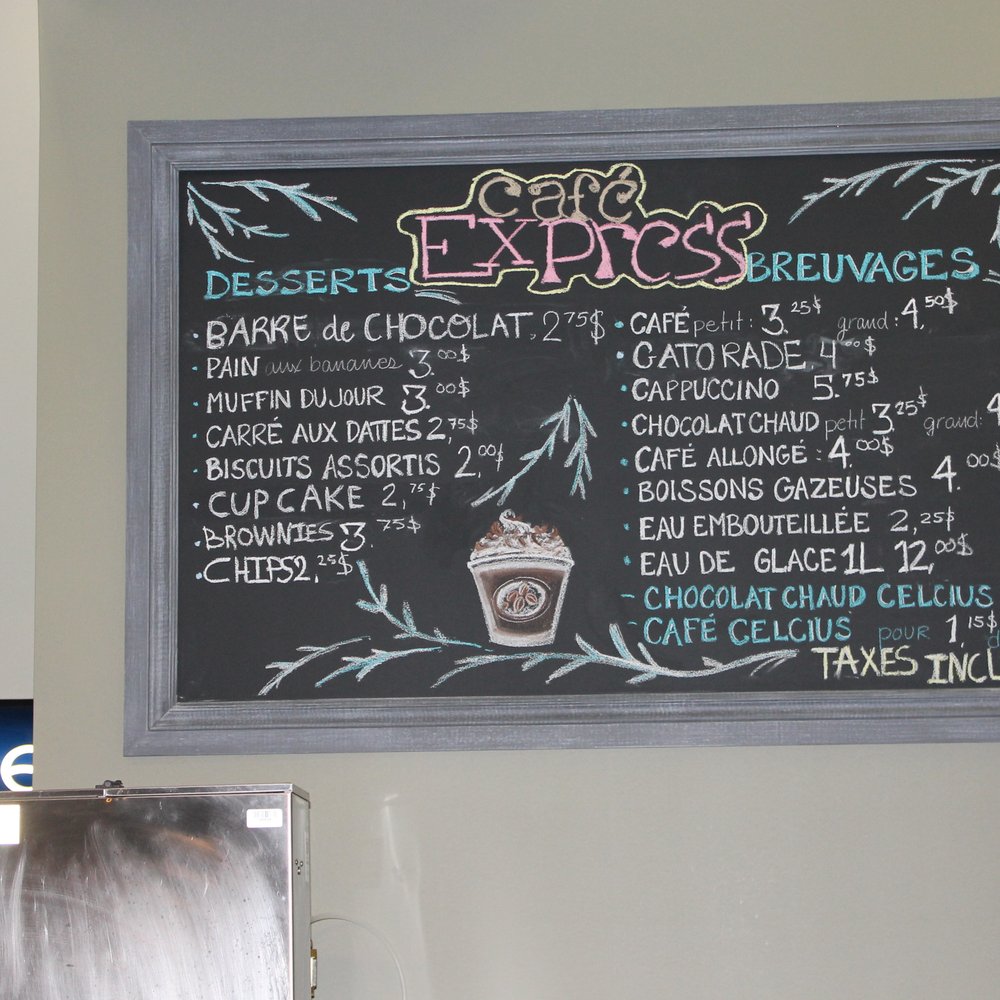 café
Express
DESSERTS
• BARRE de CHOCOLAT, 2,75$
• PAIN aux bananes 3.00$
• MUFFIN DU JOUR 3.00$
• CARRÉ AUX DATTES 2,75$
• BISCUITS ASSORTIS 2,00$
• CUP CAKE 2,75$
• BROWNIES 3.75$
• CHIPS 2,25$
BREUVAGES
• CAFÉ petit: 3.25$ grand: 4,50$
• GATORADE 4.00$
• CAPPUCCINO 5.75$
• CHOCOLAT CHAUD petit 3.25$ grand: 4
• CAFÉ ALLONGÉ: 4.00$
• BOISSONS GAZEUSES 4.00$
• EAU EMBOUTEILLÉE 2,25$
• EAU DE GLACE 1L 12,00$
- CHOCOLAT CHAUD CELCIUS
- CAFÉ CELCIUS pour 1.15$
TAXES INCL
e